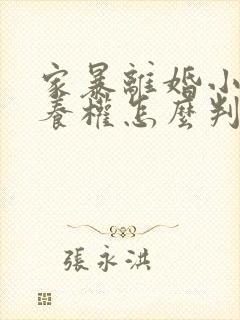 家暴離婚小
養權怎麼判
張永洪